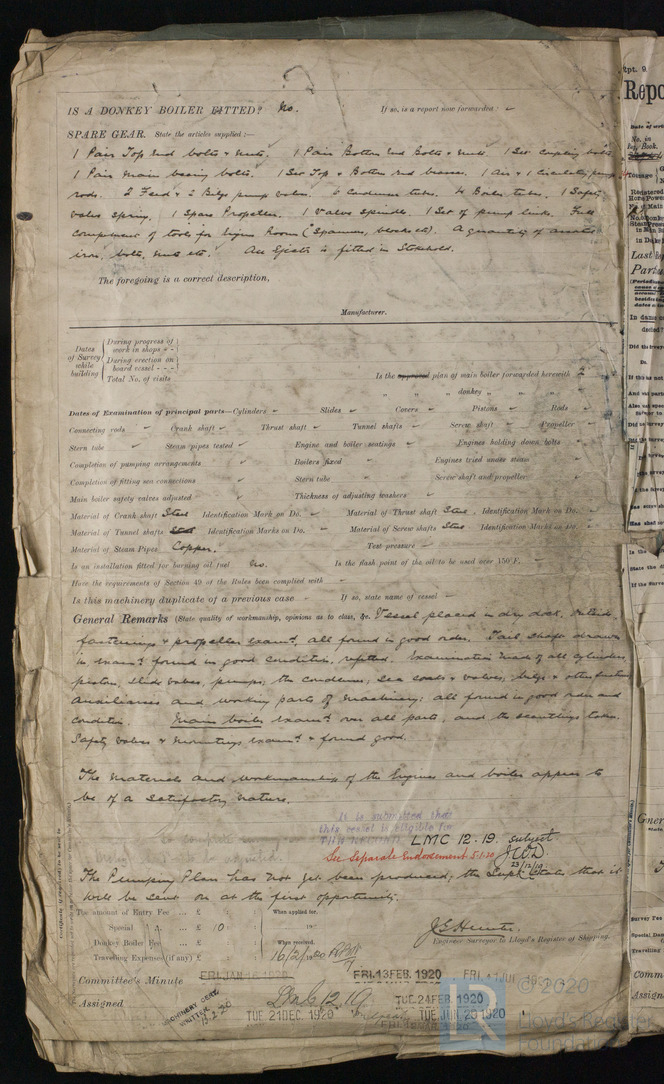 IS A DONKEY BOILER FITTED? No. If so, is a report now forwarded :
SPARE GEAR. State the articles supplied :—
1 Pair Top End bolts & nuts. 1 Pair Botton End Bolts & nuts 1 Set coupling bolts
1 Pair main bearing bolts. 1 Set Top & Botton End brasses. 1 Air & 1 Circulating pump
rods. 2 Feed & 2 Bilge pump valves. 6 Condenser tubes. 4 Boiler tubes. 1 Safety
valve spring. 1 Spare Propeller. 1 Valve spindle. 1 Set of pump links. Full
compliment of tools for Engine Room (Spanners, blocks etc). A quantity of assorted
iron, bolts, nuts etc. An Ejector is fitted in Stokehold.
The foregoing is a correct description,
Manufacturer.
Dates of Survey while building
During progress of work in shops - -
During erection on board vessel - - -
Total No. of visits
Is the approved plan of main boiler forwarded herewith 2
" " donkey " " "
Dates of Examination of principal parts—Cylinders Slides Covers Pistons Rods
Connecting rods Crank shaft Thrust shaft Tunnel shafts Screw shaft Propeller
Stern tube Steam pipes tested Engine and boiler seatings Engines holding down bolts
Completion of pumping arrangements Boilers fixed Engines tried under steam
Completion of fitting sea connections Stern tube Screw shaft and propeller
Main boiler safety valves adjusted Thickness of adjusting washers
Material of Crank shaft Steel Identification Mark on Do. Material of Thrust shaft Steel. Identification Mark on Do.
Material of Tunnel shafts Steel Identification Marks on Do. Material of Screw shafts Steel Identification Marks on Do.
Material of Steam Pipes Copper. Test pressure
Is an installation fitted for burning oil fuel No. Is the flash point of the oil to be used over 150°F.
Have the requirements of Section 49 of the Rules been complied with
Is this machinery duplicate of a previous case If so, state name of vessel
General Remarks (State quality of workmanship, opinions as to class, &c. Vessel placed in dry dock, outside
fastenings & propeller examd, all found in good order. Tail shaft drawn
in examd found in good condition, refitted. Examination made of all cylinders
piston, slide valves, pumps, the condenser; sea cocks & valves; bilge & other suction
Auxiliaries and working parts of Machinery; all found in good order and
condition. Main boiler examd over all parts, and the scantlings taken.
Safety Valves & Mountings examd & found good.
The Materials and workmanship of the Engines and boiler appear to
be of a satisfactory nature.
It is submitted that
this vessel is eligible for
THE RECORD. LMC 12.19. subject
See Separate Endorsement 5.1.20 23/12/19
The Pumping Plan has not yet been produced; the Supt. States that it
will be sent on at the first opportunity.
The amount of Entry Fee ... £ : : When applied for,
Special ... £ 10 : 19
Donkey Boiler Fee ... £ : : When received,
Travelling Expenses (if any) £ : : 16/2/1920
Engineer Surveyor to Lloyd's Register of Shipping.
Committee's Minute FRI. JAN 16 1920 FRI. 13 FEB. 1920
Assigned TUE. 24 FEB. 1920
MACHINERY CERT. WRITTEN
TUE 21 DEC. 1920 TUE. JUN 29 1920
© 2020
LR
Lloyd's Register
Foundation
Rpt. 9.